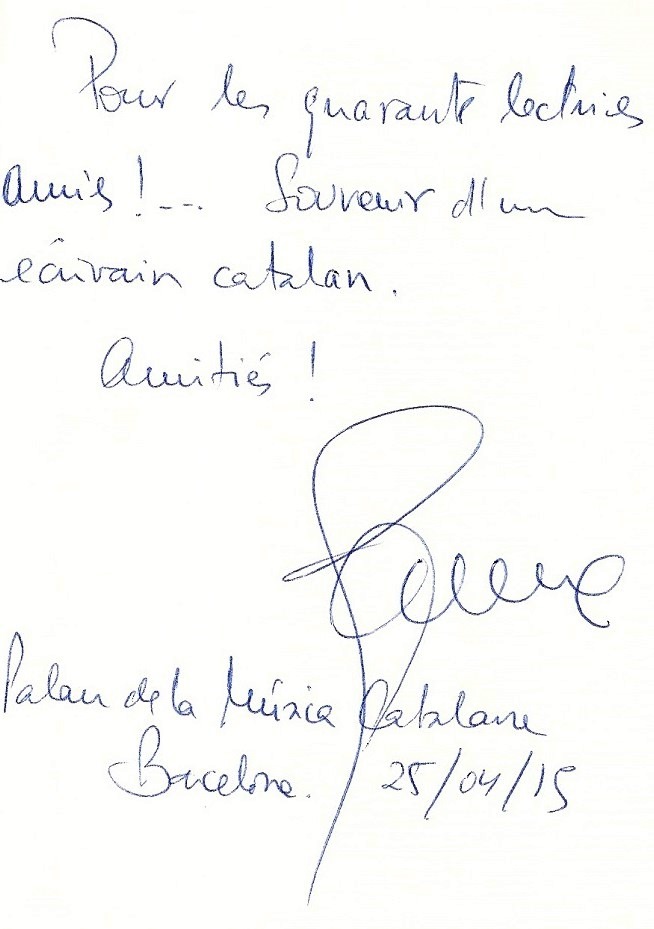 Pour les quarante lectrices
amies !... Souvenir d'un
écrivain catalan.
Amitiés !
Palau de la Música Catalana
Barcelona. 25/04/15